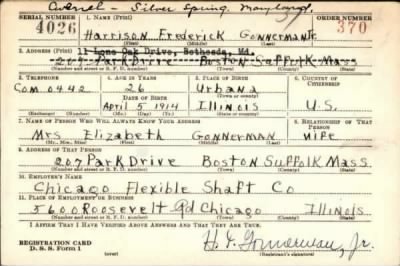 Cancel - Silver Spring, Maryland.
SERIAL NUMBER 1. NAME (Print) ORDER NUMBER
4026 Harrison Frederick Gonnerman Jr. 370
(First) (Middle) (Last)
2. ADDRESS (Print) 11 Lone Oak Drive, Bethesda, Md.
207 Park Drive Boston Suffolk Mass
(Number and street or R. F. D. number) (Town) (County) (State)
3. TELEPHONE 4. AGE IN YEARS 5. PLACE OF BIRTH 6. COUNTRY OF CITIZENSHIP
Com 0442 26 Urbana
DATE OF BIRTH (Town or county)
April 5 1914 Illinois U.S.
(Exchange) (Number) (Mo.) (Day) (Yr.) (State or country)
7. NAME OF PERSON WHO WILL ALWAYS KNOW YOUR ADDRESS 8. RELATIONSHIP OF THAT PERSON
Mrs Elizabeth Gonnerman Wife
(Mr., Mrs., Miss) (First) (Middle) (Last)
9. ADDRESS OF THAT PERSON
207 Park Drive Boston Suffolk Mass.
(Number and street or R. F. D. number) (Town) (County) (State)
10. EMPLOYER'S NAME
Chicago Flexible Shaft Co
11. PLACE OF EMPLOYMENT OR BUSINESS
5600 Roosevelt Rd Chicago Illinois
(Number and street or R. F. D. number) (Town) (County) (State)
I AFFIRM THAT I HAVE VERIFIED ABOVE ANSWERS AND THAT THEY ARE TRUE.
REGISTRATION CARD
D. S. S. Form 1 (over) H. F. Gonnerman, Jr.
(Registrant's signature)